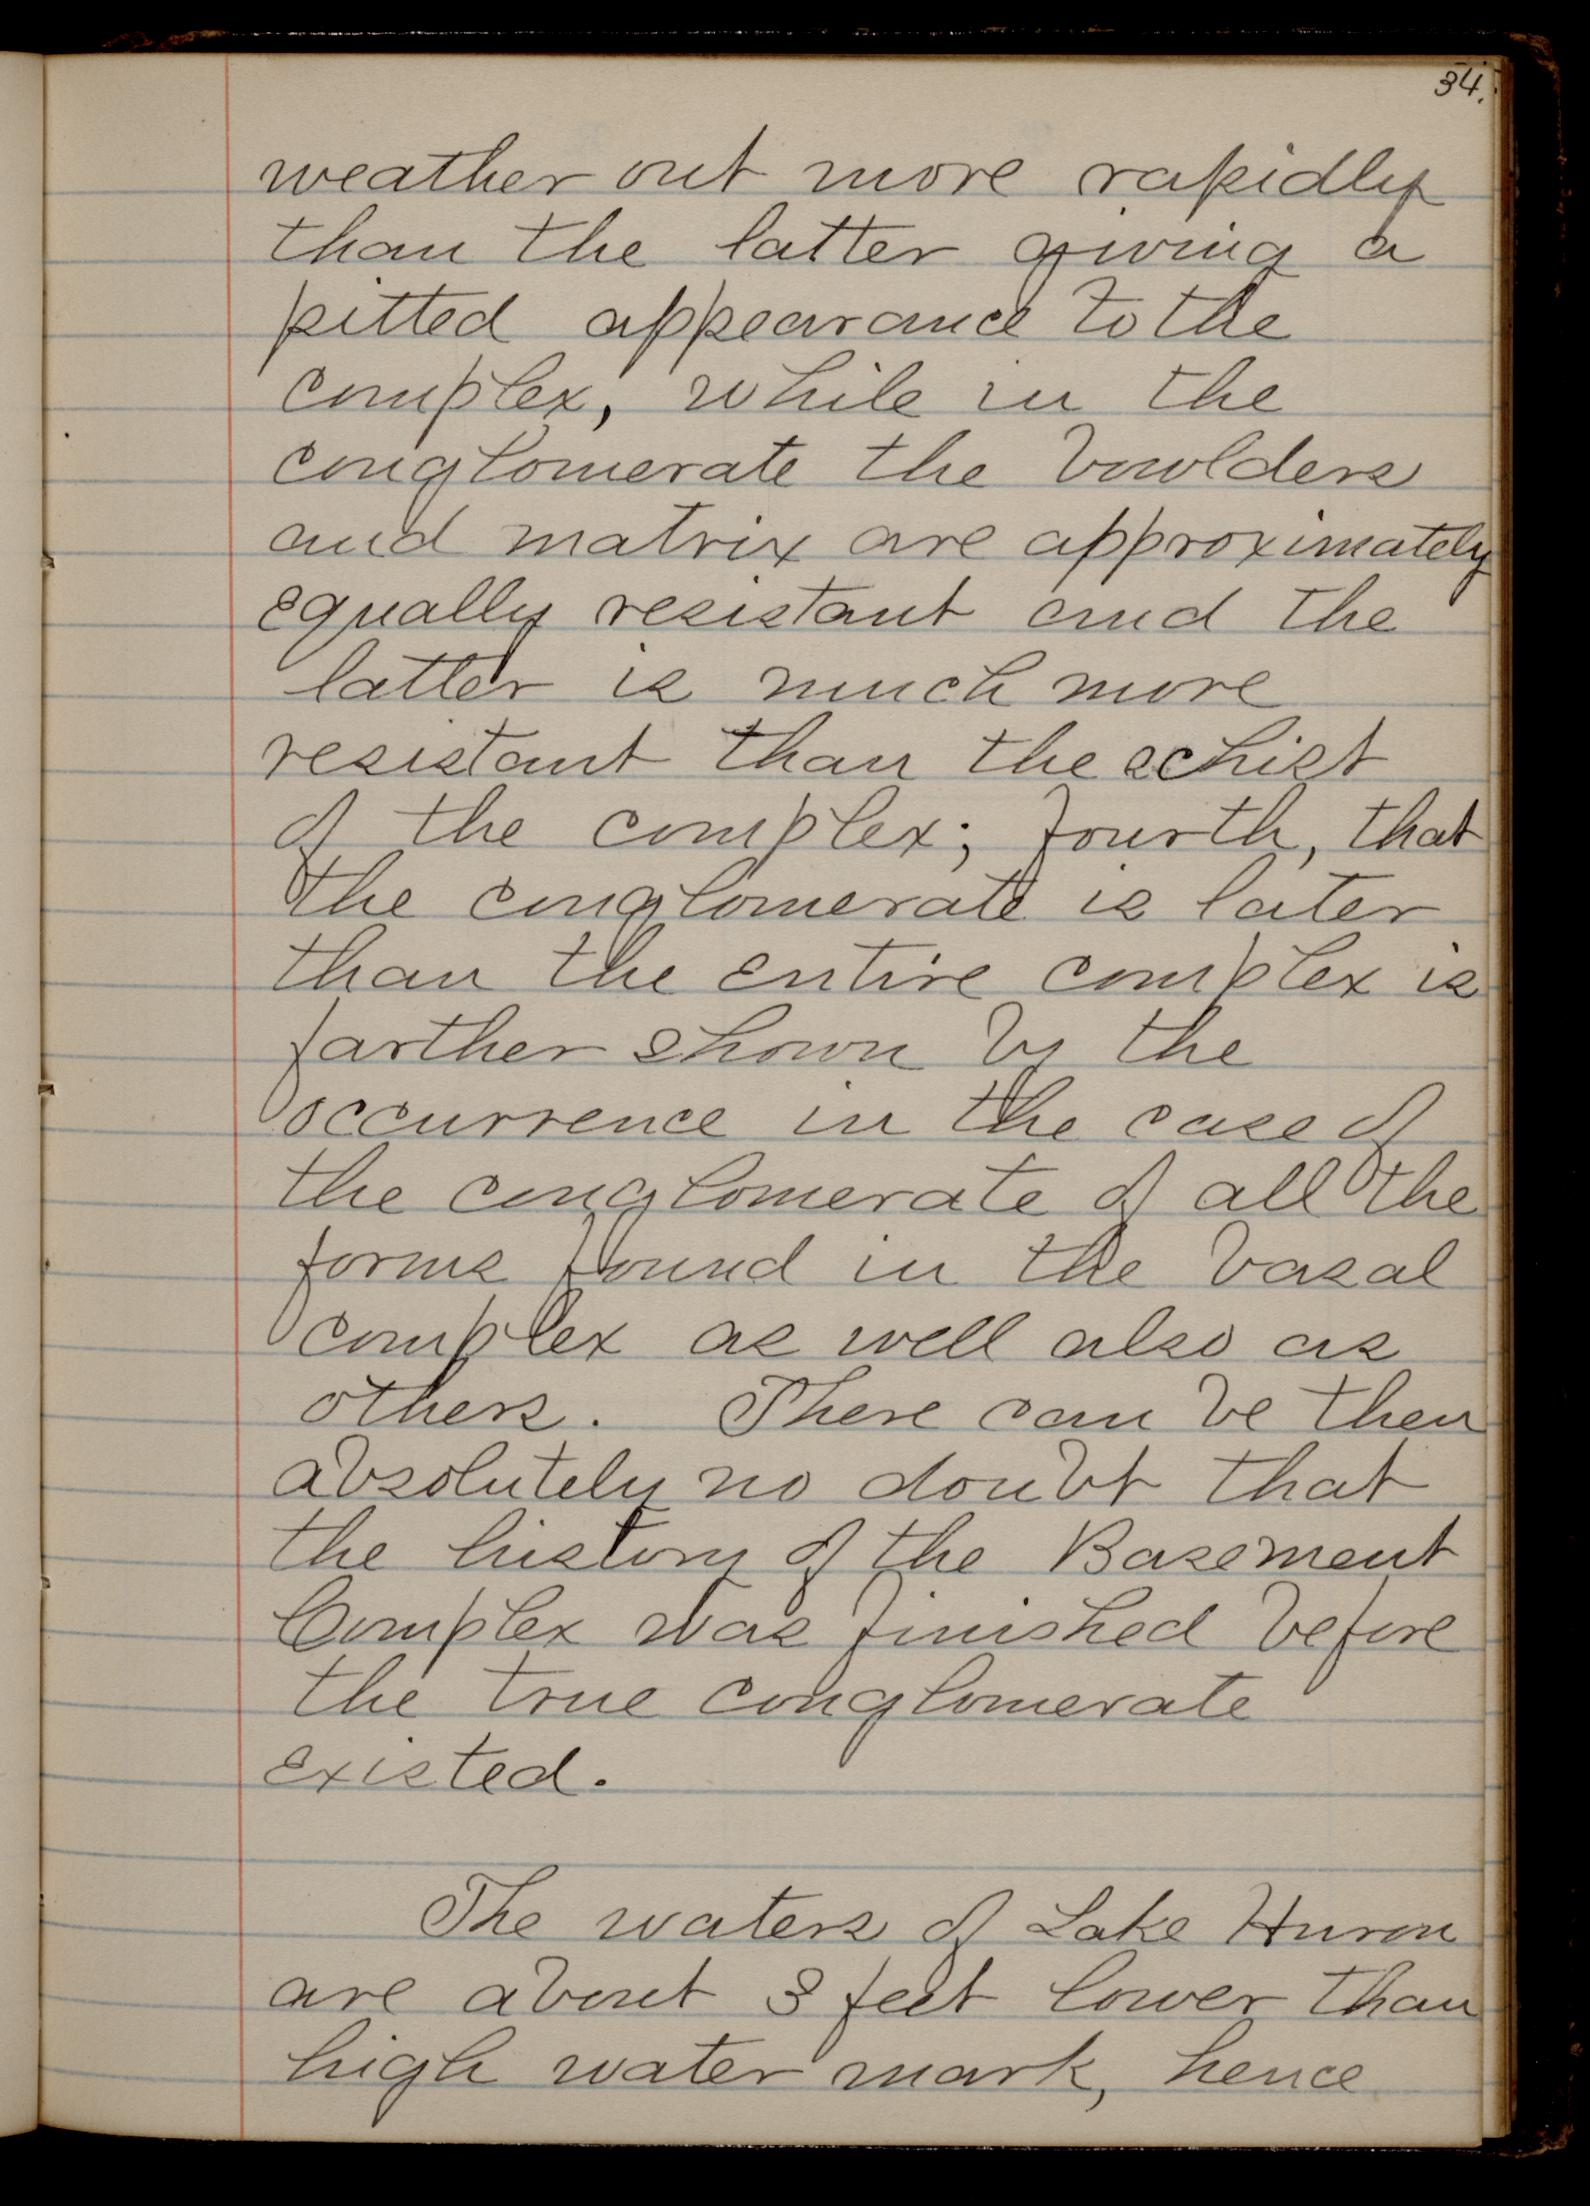 34.
weather out more rapidly
than the latter giving a
pitted appearance to the
complex, while in the
conglomerate the bowlders
and matrix are approximately
equally resistant and the
latter is much more
resistant than the schist
of the complex; fourth, that
the conglomerate is later
than the entire complex is
farther shown by the
occurrence in the case of
the conglomerate of all the
forms found in the basal
complex as well also as
others. There can be then
absolutely no doubt that
the history of the Basement
Complex was finished before
the true conglomerate
existed.
The waters of Lake Huron
are about 3 feet lower than
high water mark, hence